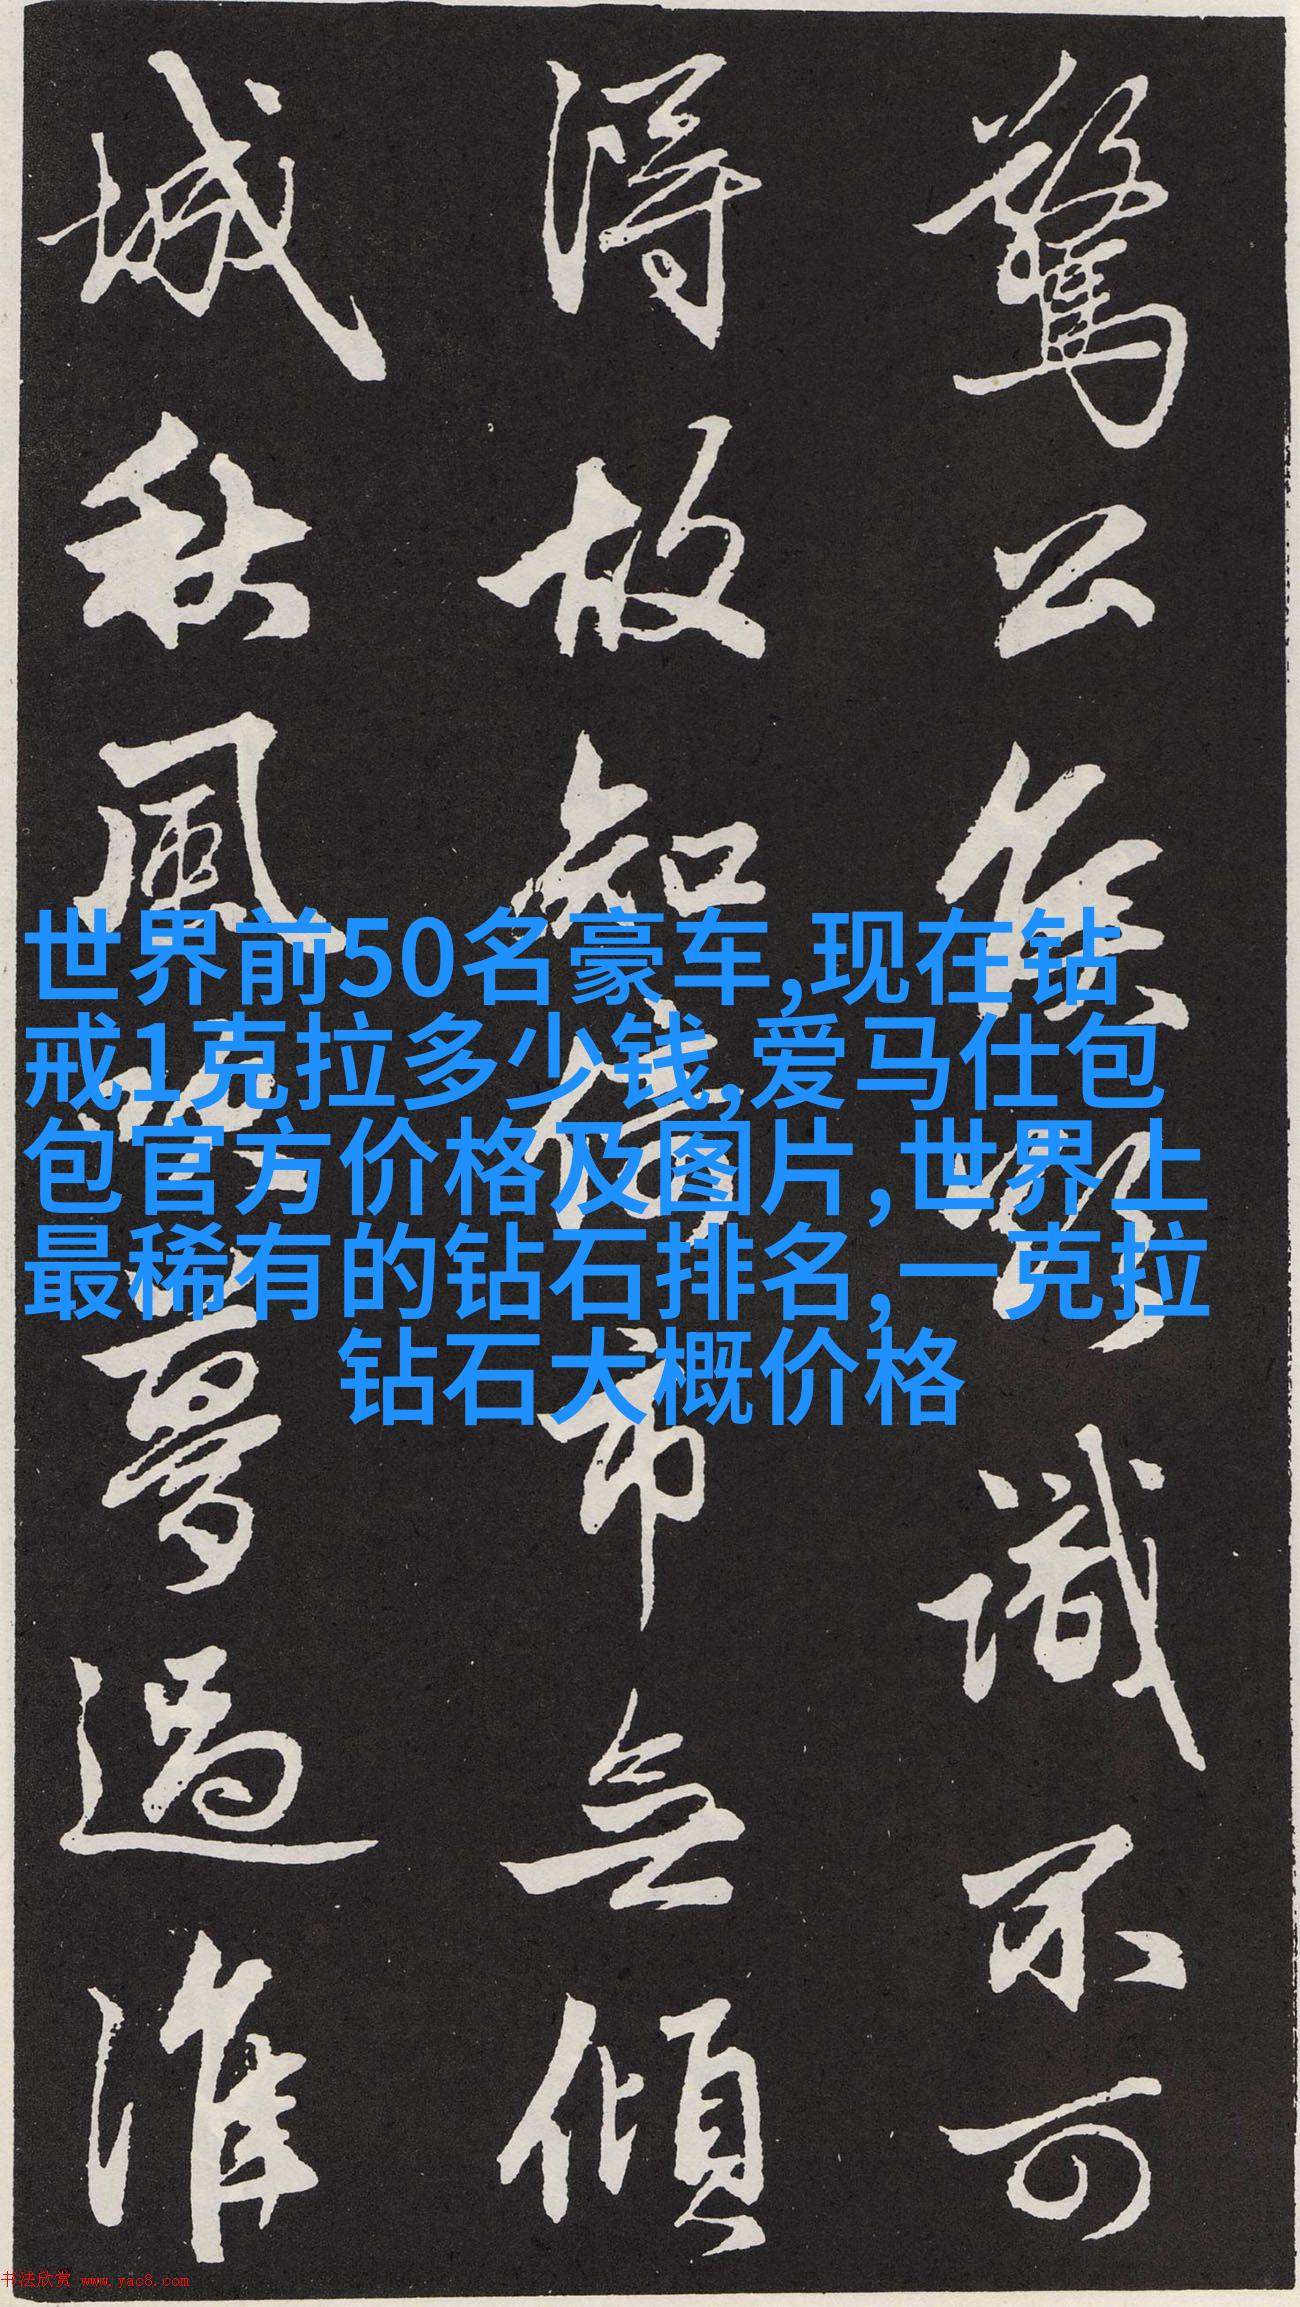 驚公侯識不可
得故知倚市無傾
城秋風吹夢過淮
世界前50名豪车,现在钻
戒1克拉多少钱,爱马仕包
包官方价格及图片,世界上
最稀有的钻石排名,一克拉
钻石大概价格
书法欣赏 www.yac8.com